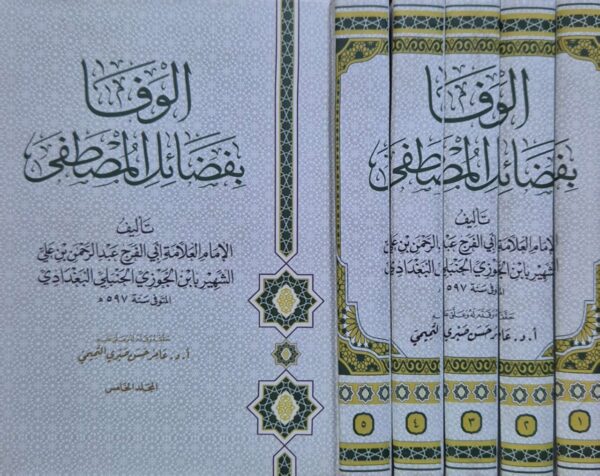 الوفا
بفضائل المصطفى
تأليف
الإمام العلامة أبي الفرج عبد الرحمن بن علي
الشهير بابن الجوزي الحنبلي البغدادي
المتوفى سنة ٥٩٧ هـ
حققه وقدم له وعلق عليه
أ. د. عامر حسن صبري التميمي
المجلد الخامس
الوفا
بفضائل المصطفى
تأليف
الإمام العلامة أبي الفرج عبد الرحمن بن علي
الشهير بابن الجوزي الحنبلي البغدادي
المتوفى سنة ٥٩٧ هـ
حققه وقدم له وعلق عليه
أ. د. عامر حسن صبري التميمي
١
٢
٣
٤
٥